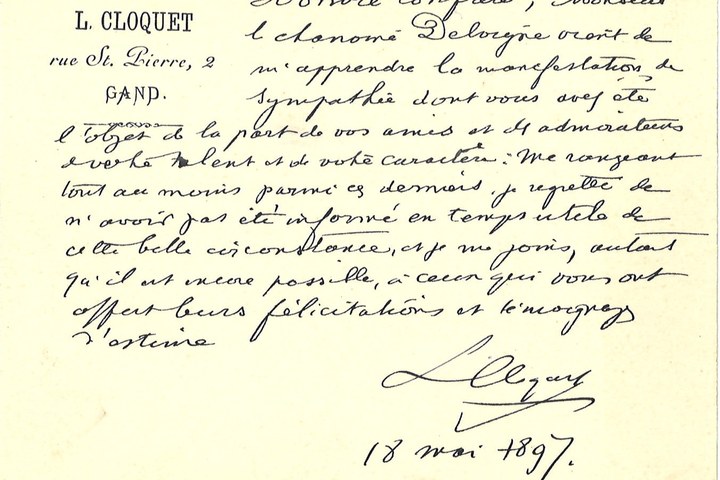 L. CLOQUET
rue St. Pierre, 2
GAND.
confrère, Monsieur
le chanoine Delvigne vient de
m'apprendre la manifestation de
sympathie dont vous avez été
l'objet de la part de vos amis et des admirateurs
de votre talent et de votre caractère. Me rangeant
tout au moins parmi ces derniers, je regrette de
n'avoir pas été informé en temps utile de
cette belle circonstance, et je me joins, autant
qu'il est encore possible, à ceux qui vous ont
offert leurs félicitations et témoignages
d'estime
L. Cloquet
18 mai 1897.